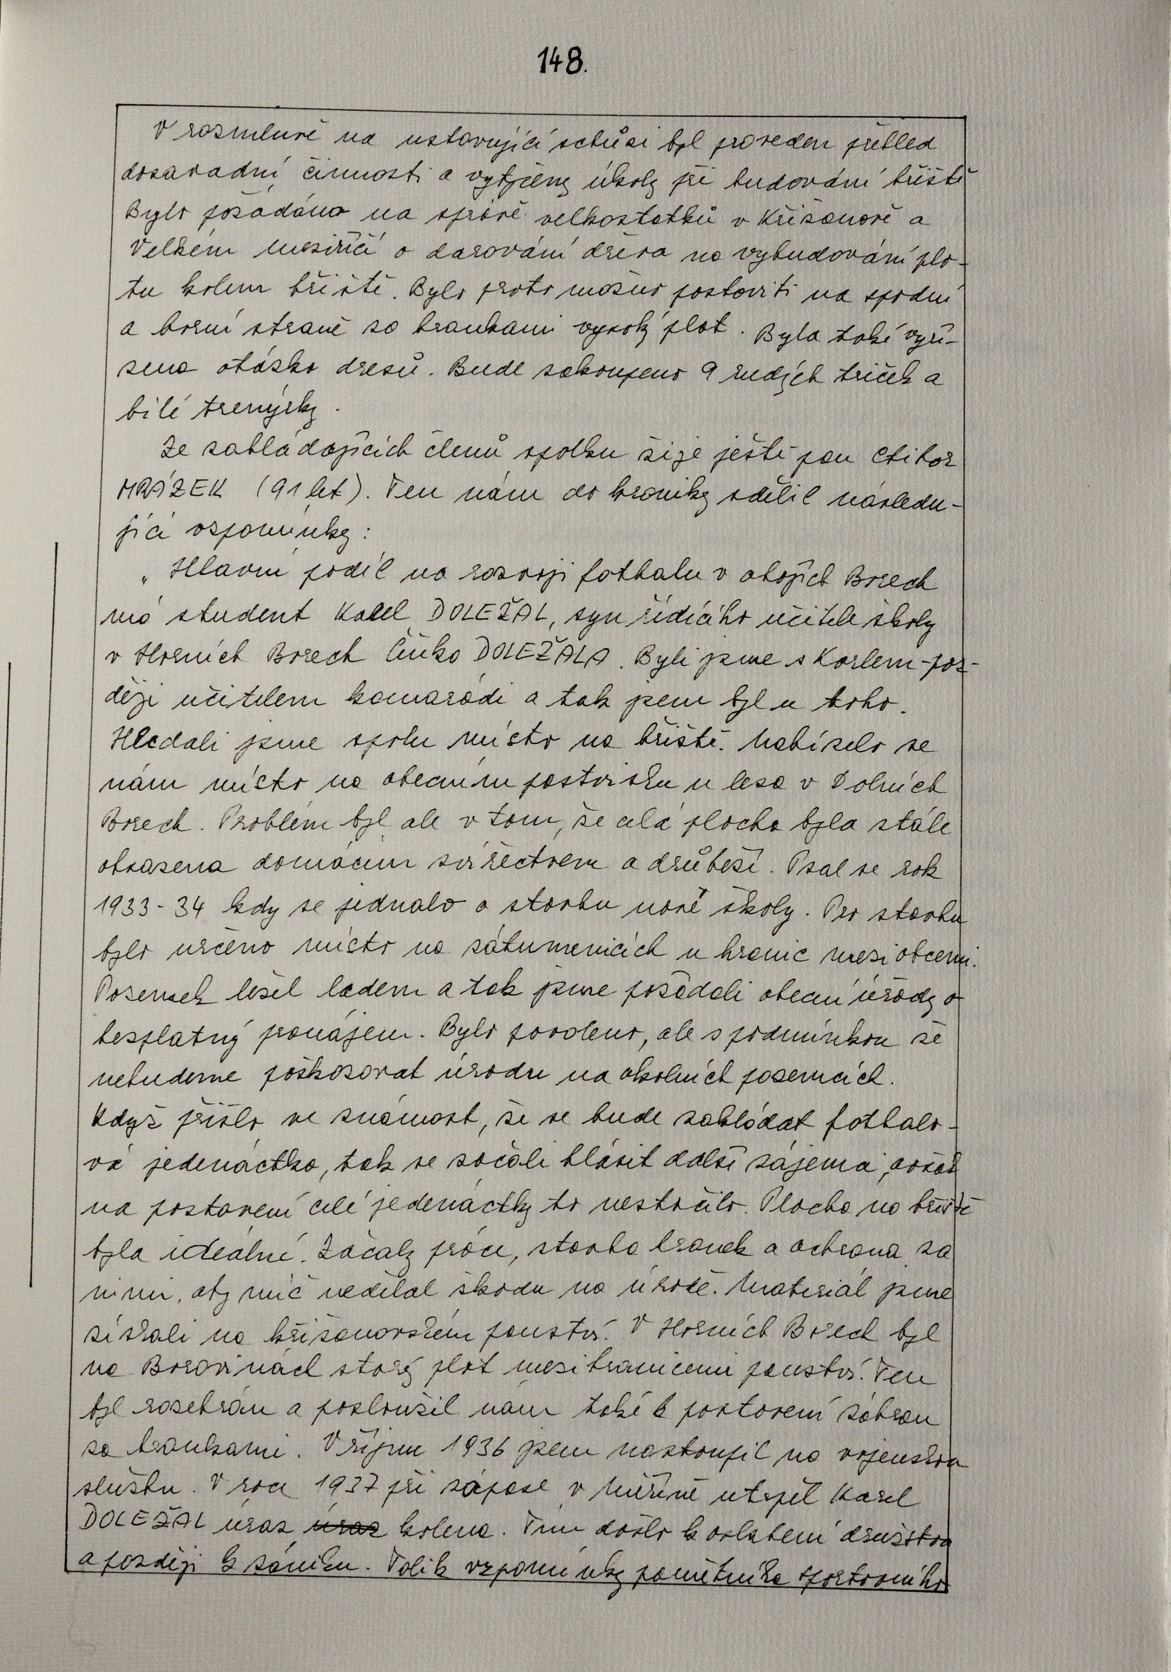 148.
V rozmluvě na ustavující schůzi byl proveden přehled
dosavadní činnosti a vytýčeny úkoly při budování hřiště
Bylo požádáno na správě velkostatků v Křižanově a
Velkém Meziříčí o darování dřeva na vybudování plo-
tu kolem hřiště. Bylo proto možno postaviti na spodní
a horní straně za brankami vysoký plot. Byla také vyří-
zena otázka dresů. Bude zakoupeno 9 rudých triček a
bílé trenýrky.
Ze zakládajících členů spolku žije ještě pan Ctibor
MRÁZEK (91 let). Ten nám do kroniky sdělil následu-
jící vzpomínky:
„Hlavní podíl na rozvoji fotbalu v obojích Borech
má student Karel DOLEŽAL, syn řídícího učitele školy
v Horních Borech Čeňka DOLEŽALA. Byli jsme s Karlem-poz-
ději učitelem kamarádi a tak jsem byl u toho.
Hledali jsme spolu místo na hřiště. Nabízelo se
nám místo na obecním pastvisku u lesa v Dolních
Borech. Problém byl ale v tom, že celá plocha byla stále
obsazena domácím zvířectvem a drůbeží. Psal se rok
1933-34 kdy se jednalo o stavbu nové školy. Pro stavbu
bylo určeno místo na zátumenicích u hranic mezi obcemi.
Pozemek ležel ladem a tak jsme požádali obecní úřady o
bezplatný pronájem. Bylo povoleno, ale s podmínkou že
nebudeme poškozovat úrodu na okolních pozemcích.
Když přišlo ve známost, že se bude zakládat fotbalo-
vá jedenáctka, tak se začali hlásit další zájemci, avšak
na postavení celé jedenáctky to nestačilo. Plocha na hřiště
byla ideální. Začaly práce, stavba branek a ochrana za
nimi, aby míč nedělal škodu na úrodě. Materiál jsme
získali na křižanovském panství. V Horních Borech byl
na Borovinách starý plot mezi hranicemi panství. Ten
byl rozebrán a posloužil nám také k postavení zábran
za brankami. V říjnu 1936 jsem nastoupil na vojenskou
službu. V roce 1937 při zápase v Měříně utrpěl Karel
DOLEŽAL úraz úraz kolena. Tím došlo k oslabení družstva
a později k zániku. Tolik vzpomínky pamětníka sportovního